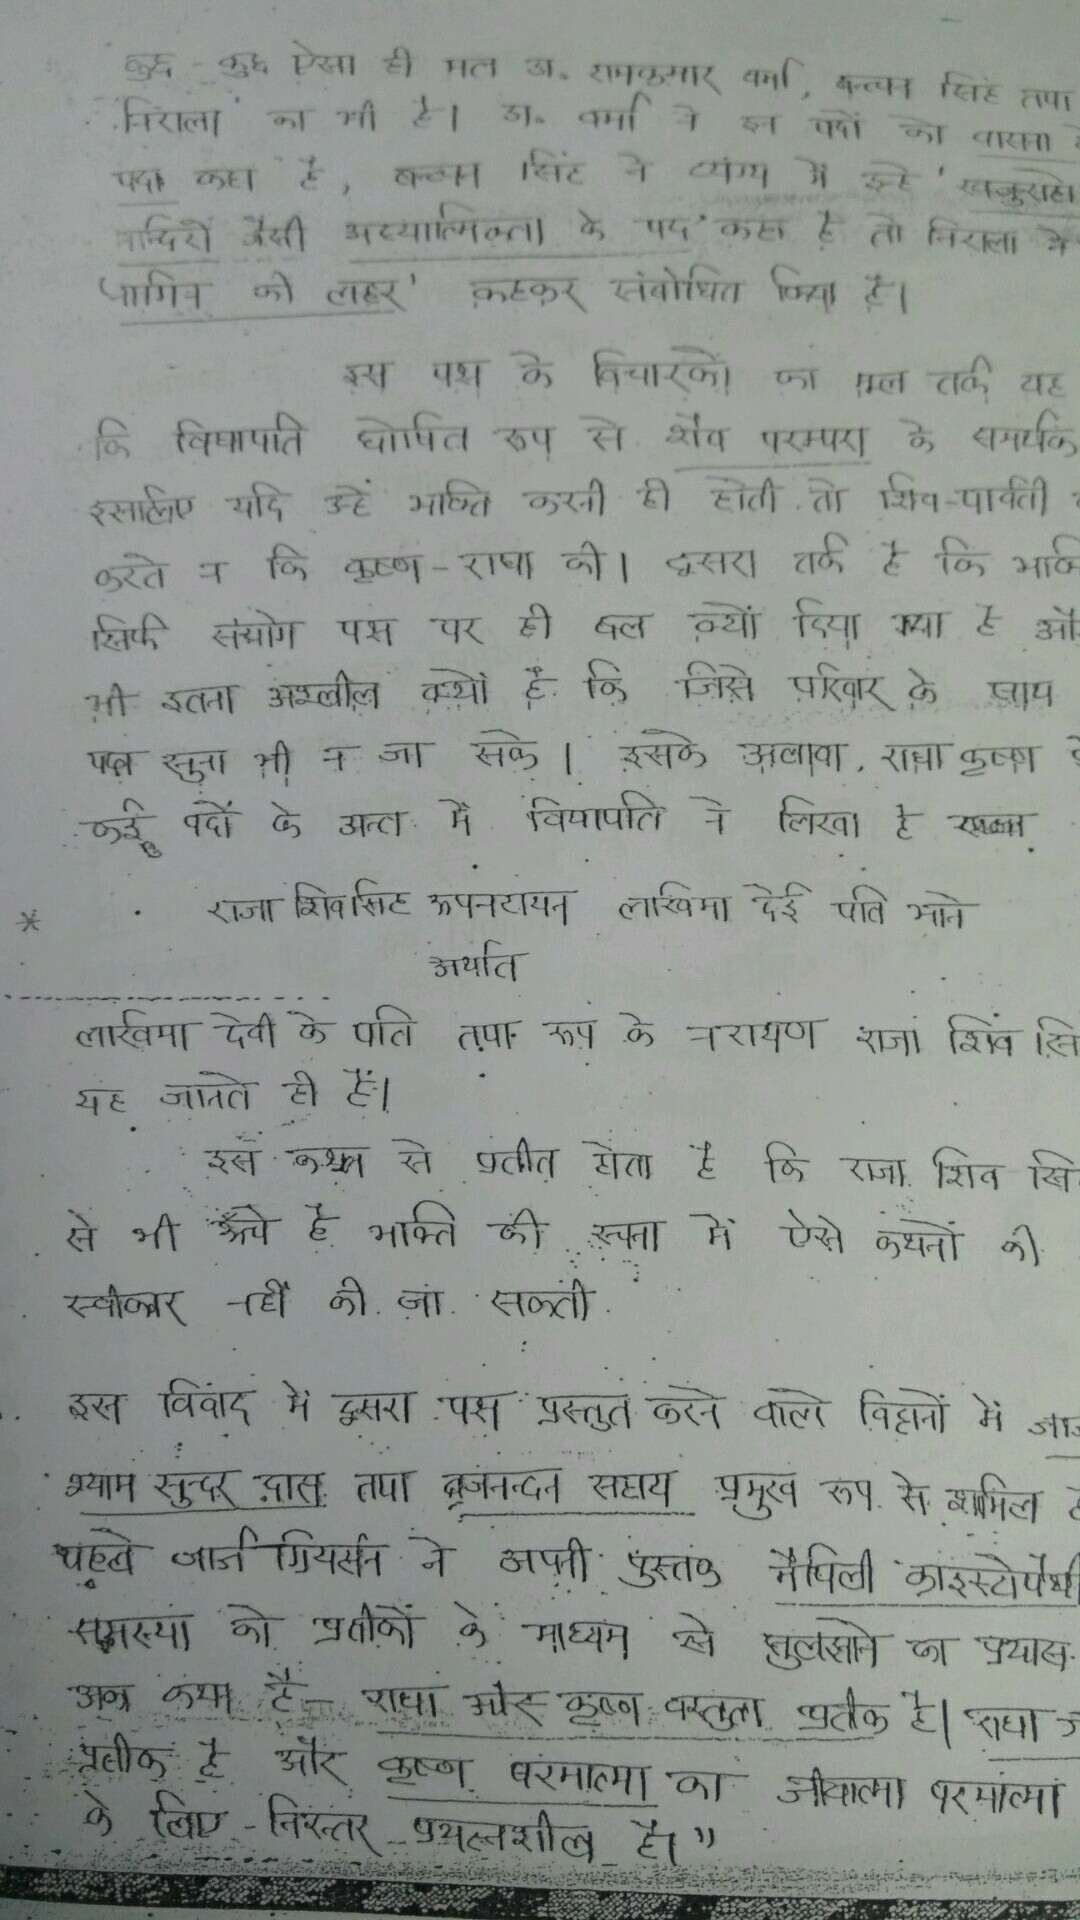 कुछ - कुछ ऐसा ही मत डा. रामकुमार वर्मा, बच्चन सिंह तथा
निराला का भी है। डा. वर्मा ने इन पदों को वासना
पदा कहा है, बच्चन सिंह ने व्यंग्य में इन्हे 'खजुराहो
मन्दिरों जैसी अध्यात्मिकता के पद' कहा है तो निराला ने
'नागिन की लहर' कहकर संबोधित किया है।
इस पक्ष के विचारकों का मूल तर्क यह
कि विद्यापति घोषित रूप से शैव परम्परा के समर्थक
इसलिए यदि उन्हें भक्ति करनी ही होती तो शिव-पार्वती
करते न कि कृष्ण-राधा की। दूसरा तर्क है कि
सिर्फ संयोग पक्ष पर ही बल क्यों दिया गया है
भी इतना अश्लील क्यों है कि जिसे परिवार के साथ
सुना भी न जा सके। इसके अलावा, राधा कृष्ण
कई पदों के अन्त में विद्यापति ने लिखा है
* राजा शिवसिंह रूपनरायन लखिमा देई पति भाने
अर्थात
लखिमा देवी के पति तथा रूप के नरायण राजा शिव
यह जानते ही हैं।
इस कथन से प्रतीत होता है कि राजा शिव
से भी ऊँचे है भक्ति की रचना में ऐसे कथनों की
स्वीकार नहीं की जा सकती
इस विवाद में दूसरा पक्ष प्रस्तुत करने वाले विद्वानों में
श्याम सुन्दर दास तथा ब्रजनन्दन सहाय प्रमुख रूप से शामिल
पहले जार्ज ग्रियर्सन ने अपनी पुस्तक मैथिली क्राइस्टोमैथी
समस्या को प्रतीकों के माध्यम से सुलझाने का प्रयास
कथन है राधा और कृष्ण वस्तुतः प्रतीक है। राधा
प्रतीक है और कृष्ण परमात्मा का जीवात्मा परमात्मा
के लिए निरन्तर प्रयत्नशील है।"